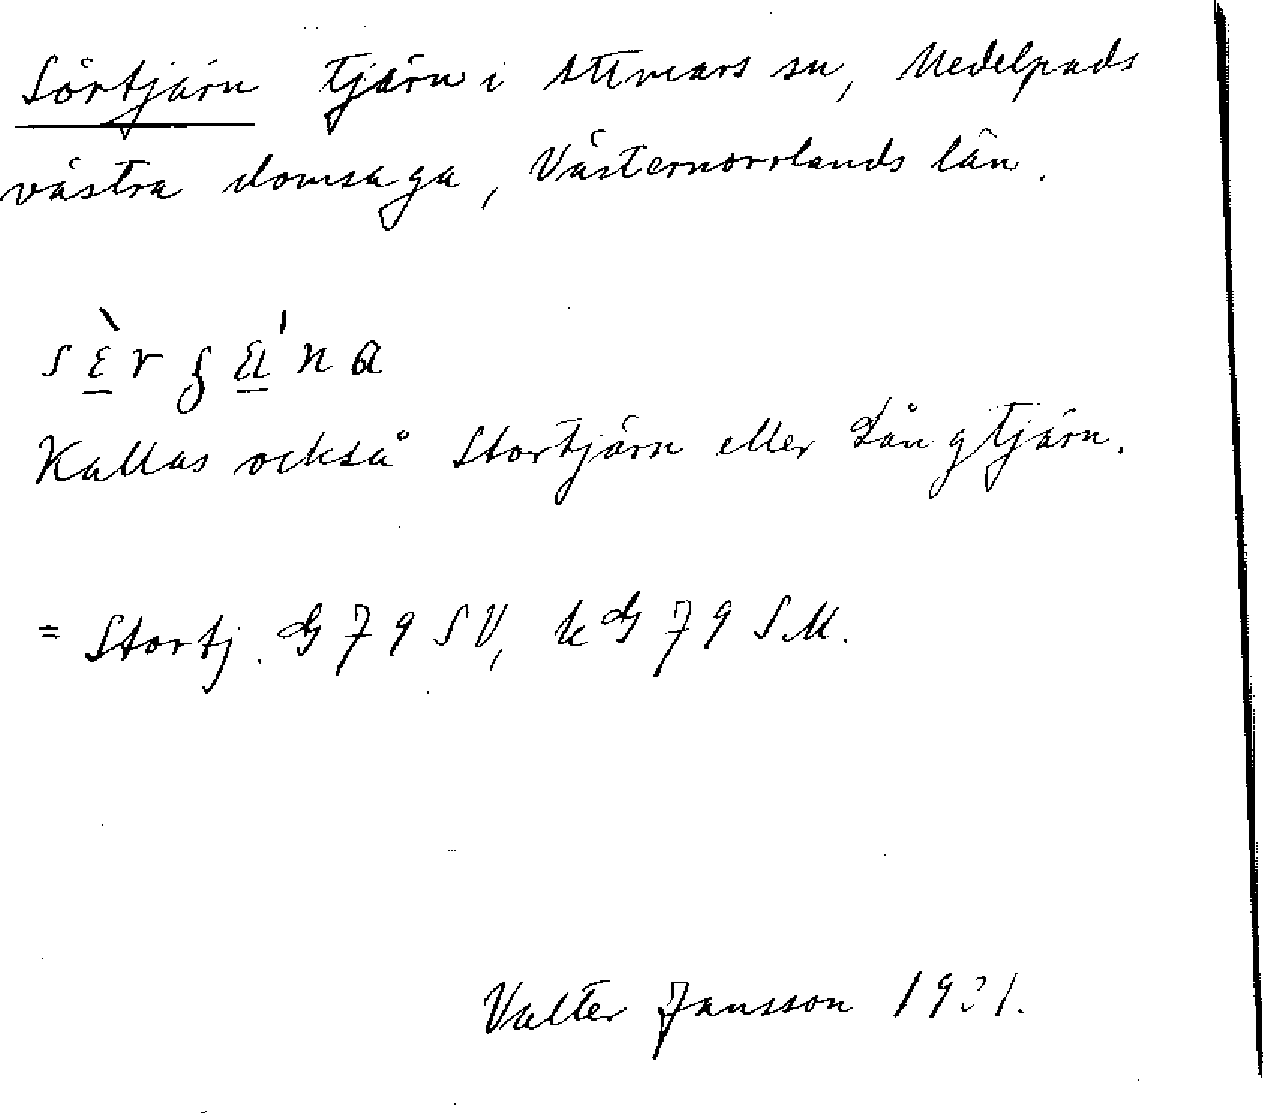 Sörtjärn tjärn i Attmars sn, Medelpads
västra domsaga, Västernorrlands län.
Kallas också Stortjärn eller Långtjärn.
= Stortj. G 79 SV, kG 79 SM.
Valter Jansson